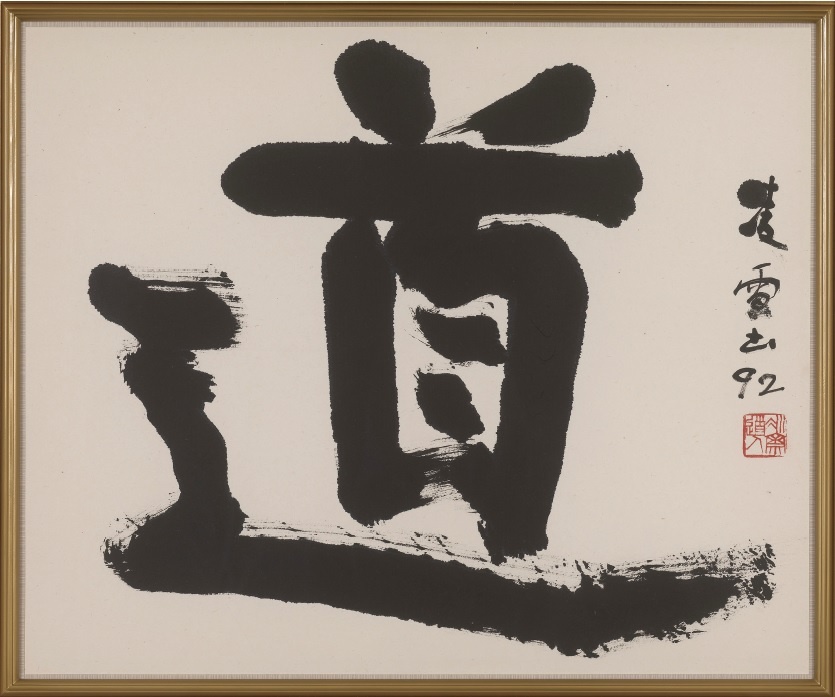 道
凌雪
92